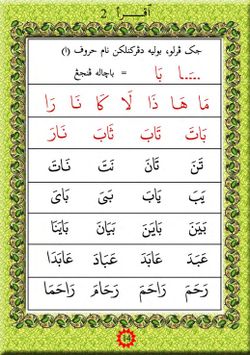 اقرأ 2
جک ڤرلو، بوليه دڤرکنلکن نام حروف (ا)
...ـا بَا = باچاله ڤنجڠ
مَا هَا ذَا لَا كَا نَا رَا
بَاتَ تَابَ ثَابَ نَارَ
تَنَ تَانَ نَتَ نَاتَ
يَبَ يَابَ بَيَ بَايَ
بَيَنَ بَايَنَ بَيَانَ بَايَنَا
عَبَدَ عَابَدَ عَبَادَ عَابَدَا
رَحَمَ رَاحَمَ رَحَامَ رَاحَمَا
14